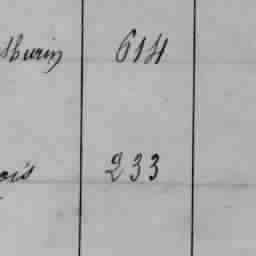 thurin 614
ois 233